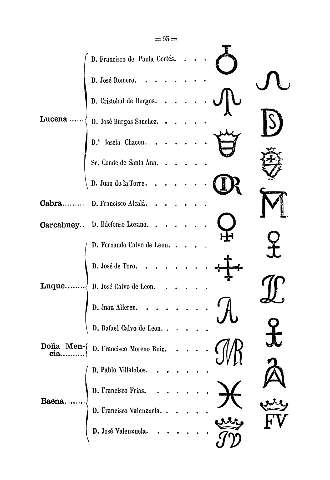 = 95 =
Lucena ......
D. Francisco de Paula Cortés. . . .
D. José Romero. . . . . . .
D. Cristobal de Burgos. . . . . .
D. José Burgos Sanchez. . . . .
D.ª Josefa Chacon. . . . . .
Sr. Conde de Santa Ana. . . . .
D. Juan de la Torre. . . . . .
Cabra......... D. Francisco Alcalá. . . . . .
Carcabuey.. D. Ildefonso Lozano. . . . . .
Luque.........
D. Fernando Calvo de Leon. . . . .
D. José de Toro. . . . . . .
D. José Calvo de Leon. . . . . .
D. Juan . . . . . . .
D. Rafael Calvo de Leon. . . . .
Doña Mencia.......... D. Francisco Moreno Ruiz. . . . .
Baena. ........
D. Pablo Villalobos. . . . . .
D. Francisco Frias. . . . . .
D. Francisco Valenzuela. . . . .
D. José Valenzuela. . . . . .
DS
DR
M
A
MR
A
FV
JV